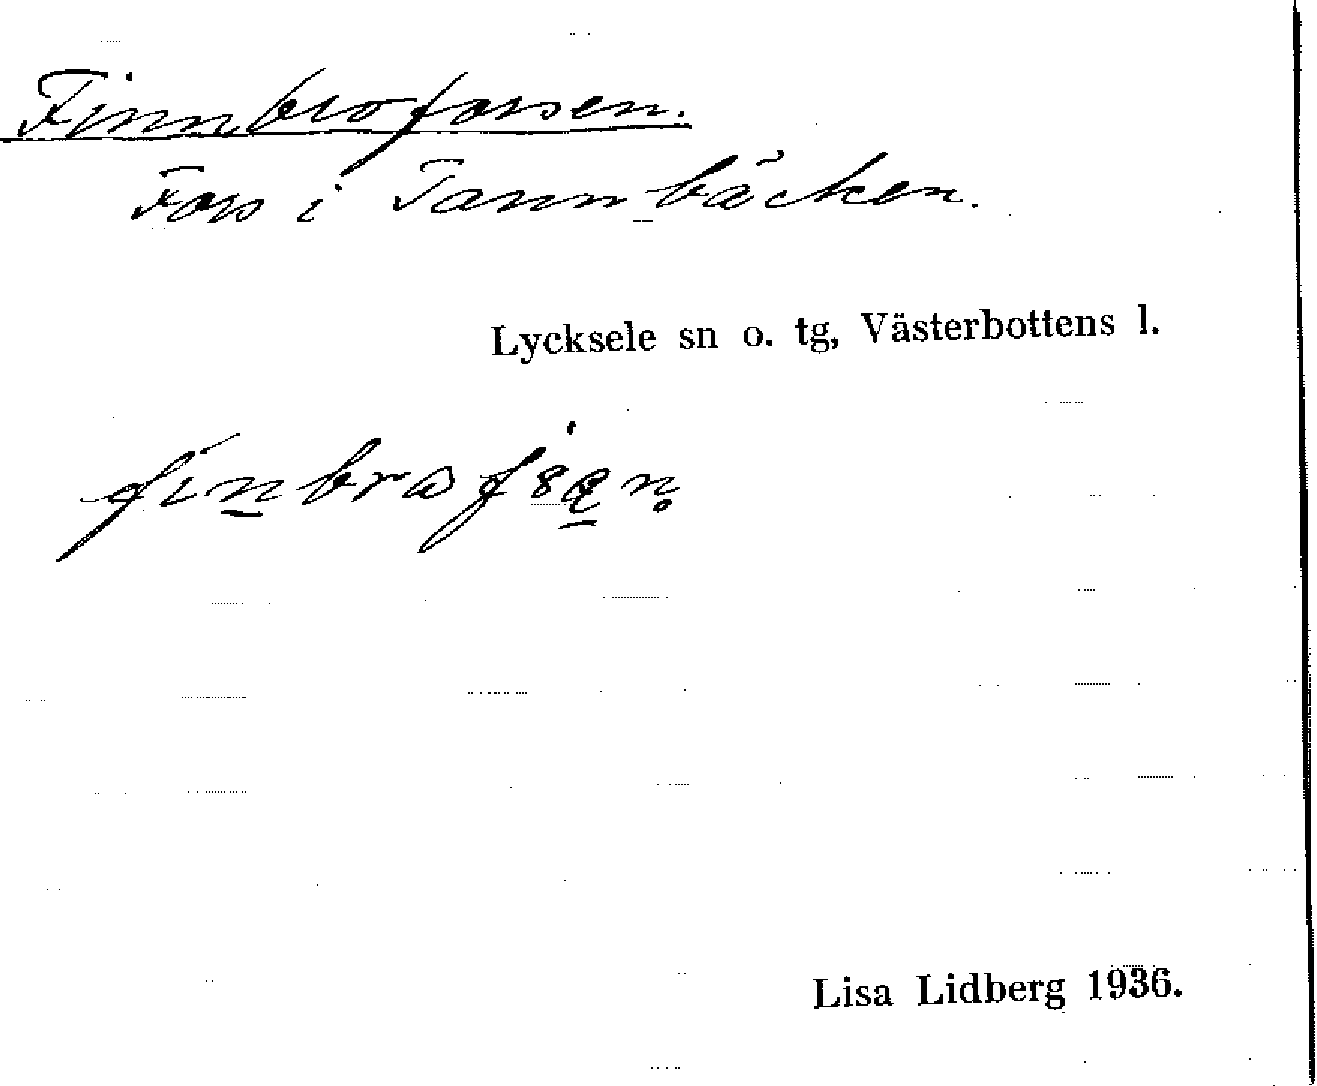 Finnbroforsen.
Fors i Tannbäcken.
Lycksele sn o. tg, Västerbottens l.
Lisa Lidberg 1936.